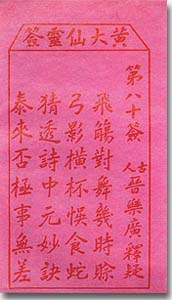 黃大仙靈簽
第八十簽
古人 晉樂廣釋疑
飛觴對舞幾時賒
弓影橫杯悞食蛇
猜透詩中元妙訣
泰來否極事無差